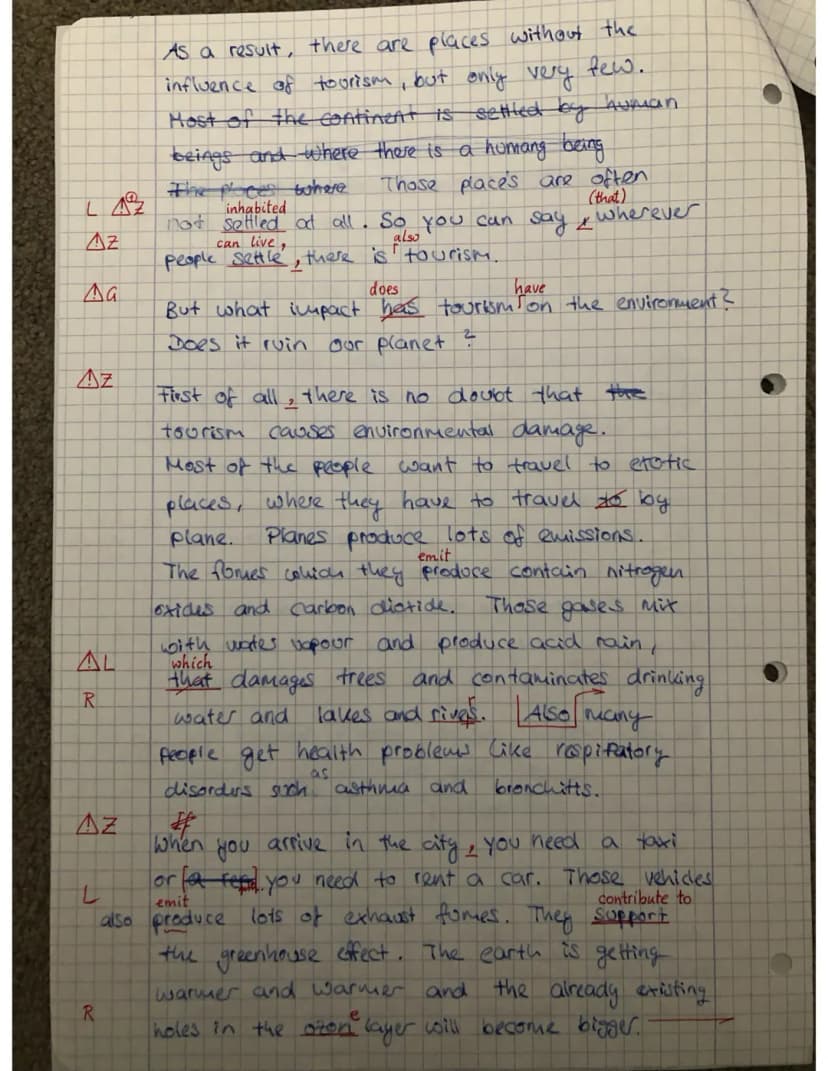 As a result, there are places without the
influence of tourism, but only very few.
Most of the continent is settled by human
beings and where there is a humang being
The places where Those places are often
(that)
L ⚠Z inhabited
not settled at all. So you can say, wherever
⚠Z can live, also
people settle, there is tourism.
⚠G does have
But what impact has tourism on the environment?
Does it ruin our planet?
⚠Z
First of all, there is no doubt that the
tourism causes environmental damage.
Most of the people want to travel to exotic
places, where they have to travel to by
plane. Planes produce lots of emissions.
emit
The fomes which they produce contain nitrogen
oxides and carbon dioxide. Those gases mix
with water vapour and produce acid rain,
⚠L which
that damages trees and contaminates drinking
R
water and lakes and rivers. Also many
people get health problems like respiratory
as
disorders such asthma and bronchitis.
⚠Z If
When you arrive in the city, you need a taxi
or a rep you need to rent a car. Those vehicles
L emit contribute to
also produce lots of exhaust fomes. They support
the greenhouse effect. The earth is getting
warmer and warmer and the already existing
R e
holes in the ozon layer will become bigger.